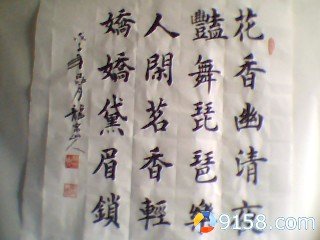 花香幽清
豔舞琵琶
人閑茗香輕
嬌嬌黛眉鎖
9158.com